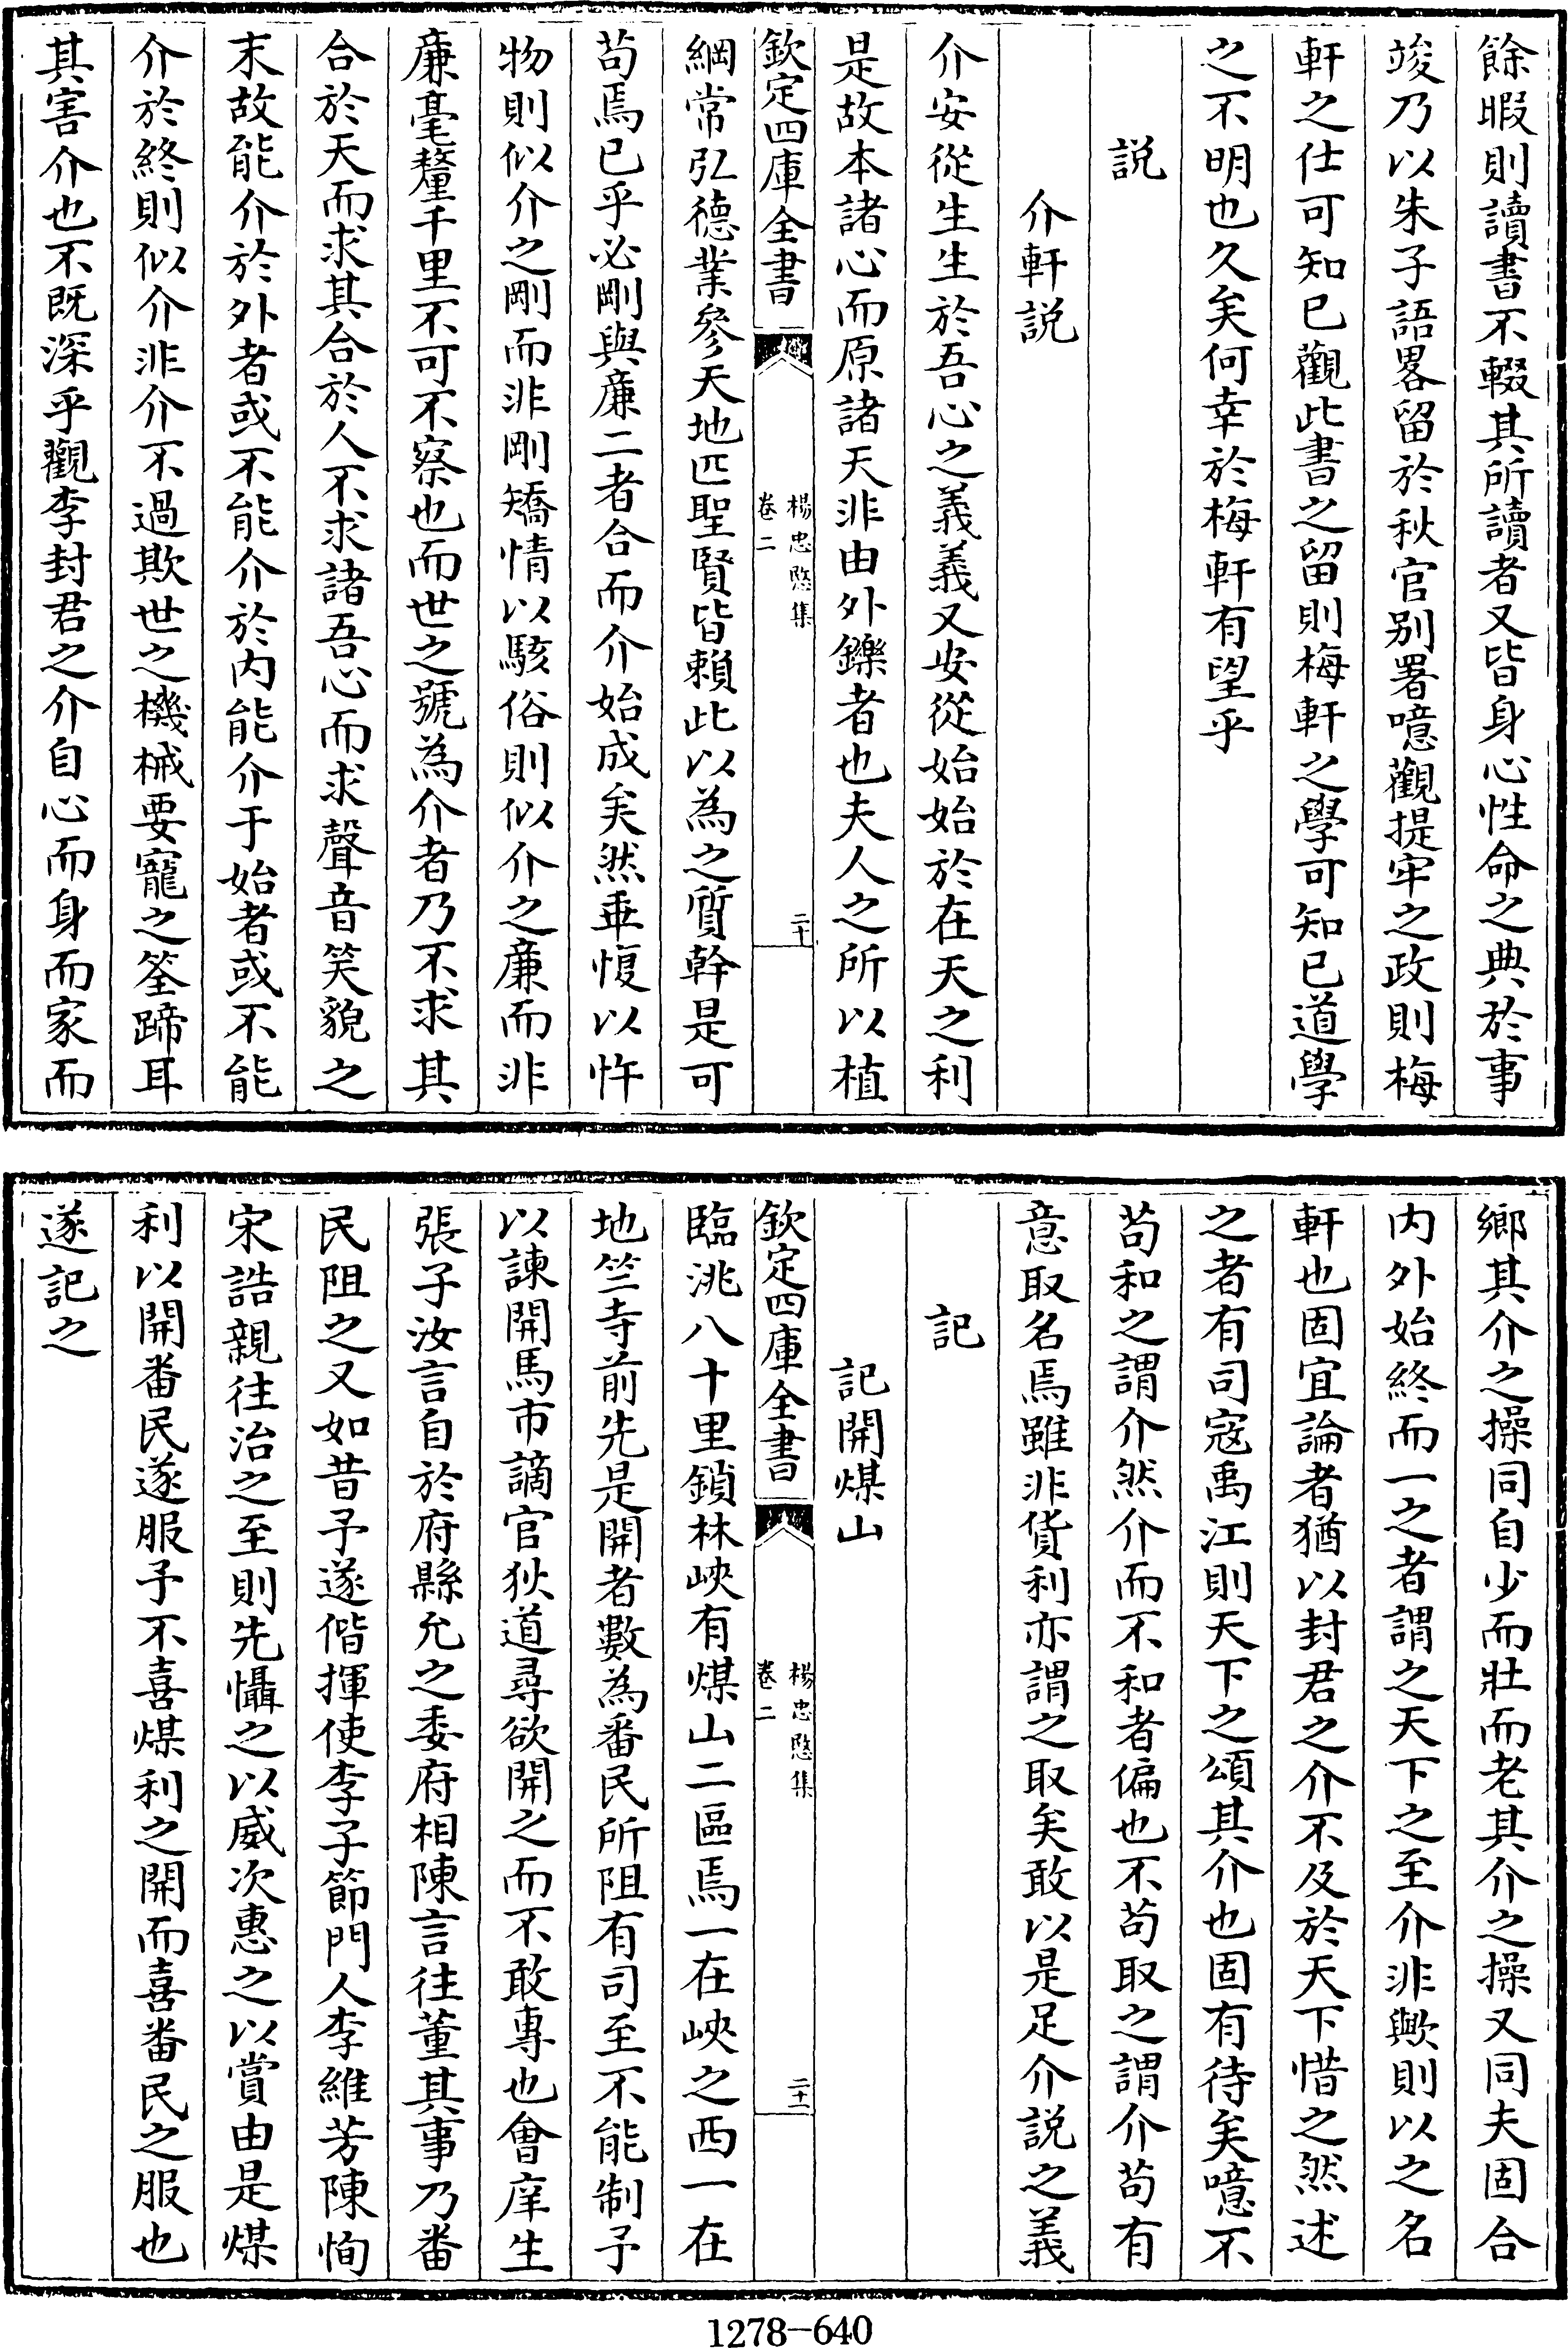 餘暇則讀書不輟其所讀者又皆身心性命之典於事
竣乃以朱子語畧留於秋官别署噫觀提牢之政則梅
軒之仕可知已觀此書之留則梅軒之學可知已道學
之不明也久矣何幸於梅軒有望乎
説
介軒説
介安從生生於吾心之義義又安從始始於在天之利
是故本諸心而原諸天非由外鑠者也夫人之所以植
欽定四庫全書
楊忠愍集
卷二
二十
綱常弘德業參天地匹聖賢皆賴此以為之質幹是可
苟焉已乎必剛與廉二者合而介始成矣然亜愎以忤
物則似介之剛而非剛矯情以駭俗則似介之廉而非
廉毫釐千里不可不察也而世之號為介者乃不求其
合於天而求其合於人不求諸吾心而求聲音笑貌之
末故能介於外者或不能介於内能介于始者或不能
介於終則似介非介不過欺世之機械要寵之筌蹄耳
其害介也不既深乎觀李封君之介自心而身而家而
鄉其介之操同自少而壯而老其介之操又同夫固合
内外始終而一之者謂之天下之至介非歟則以之名
軒也固宜論者猶以封君之介不及於天下惜之然述
之者有司寇禹江則天下之頌其介也固有待矣噫不
苟和之謂介然介而不和者偏也不苟取之謂介苟有
意取名焉雖非貨利亦謂之取矣敢以是足介説之義
記
記開煤山
欽定四庫全書
楊忠愍集
卷二
二十一
臨洮八十里鎖林峽有煤山二區焉一在峽之西一在
地竺寺前先是開者數為番民所阻有司至不能制予
以諫開馬市謫官狄道尋欲開之而不敢專也會庠生
張子汝言自於府縣允之委府相陳言往董其事乃番
民阻之又如昔予遂偕揮使李子節門人李維芳陳恂
宋誥親往治之至則先懾之以威次惠之以賞由是煤
利以開番民遂服予不喜煤利之開而喜番民之服也
遂記之
1278-640